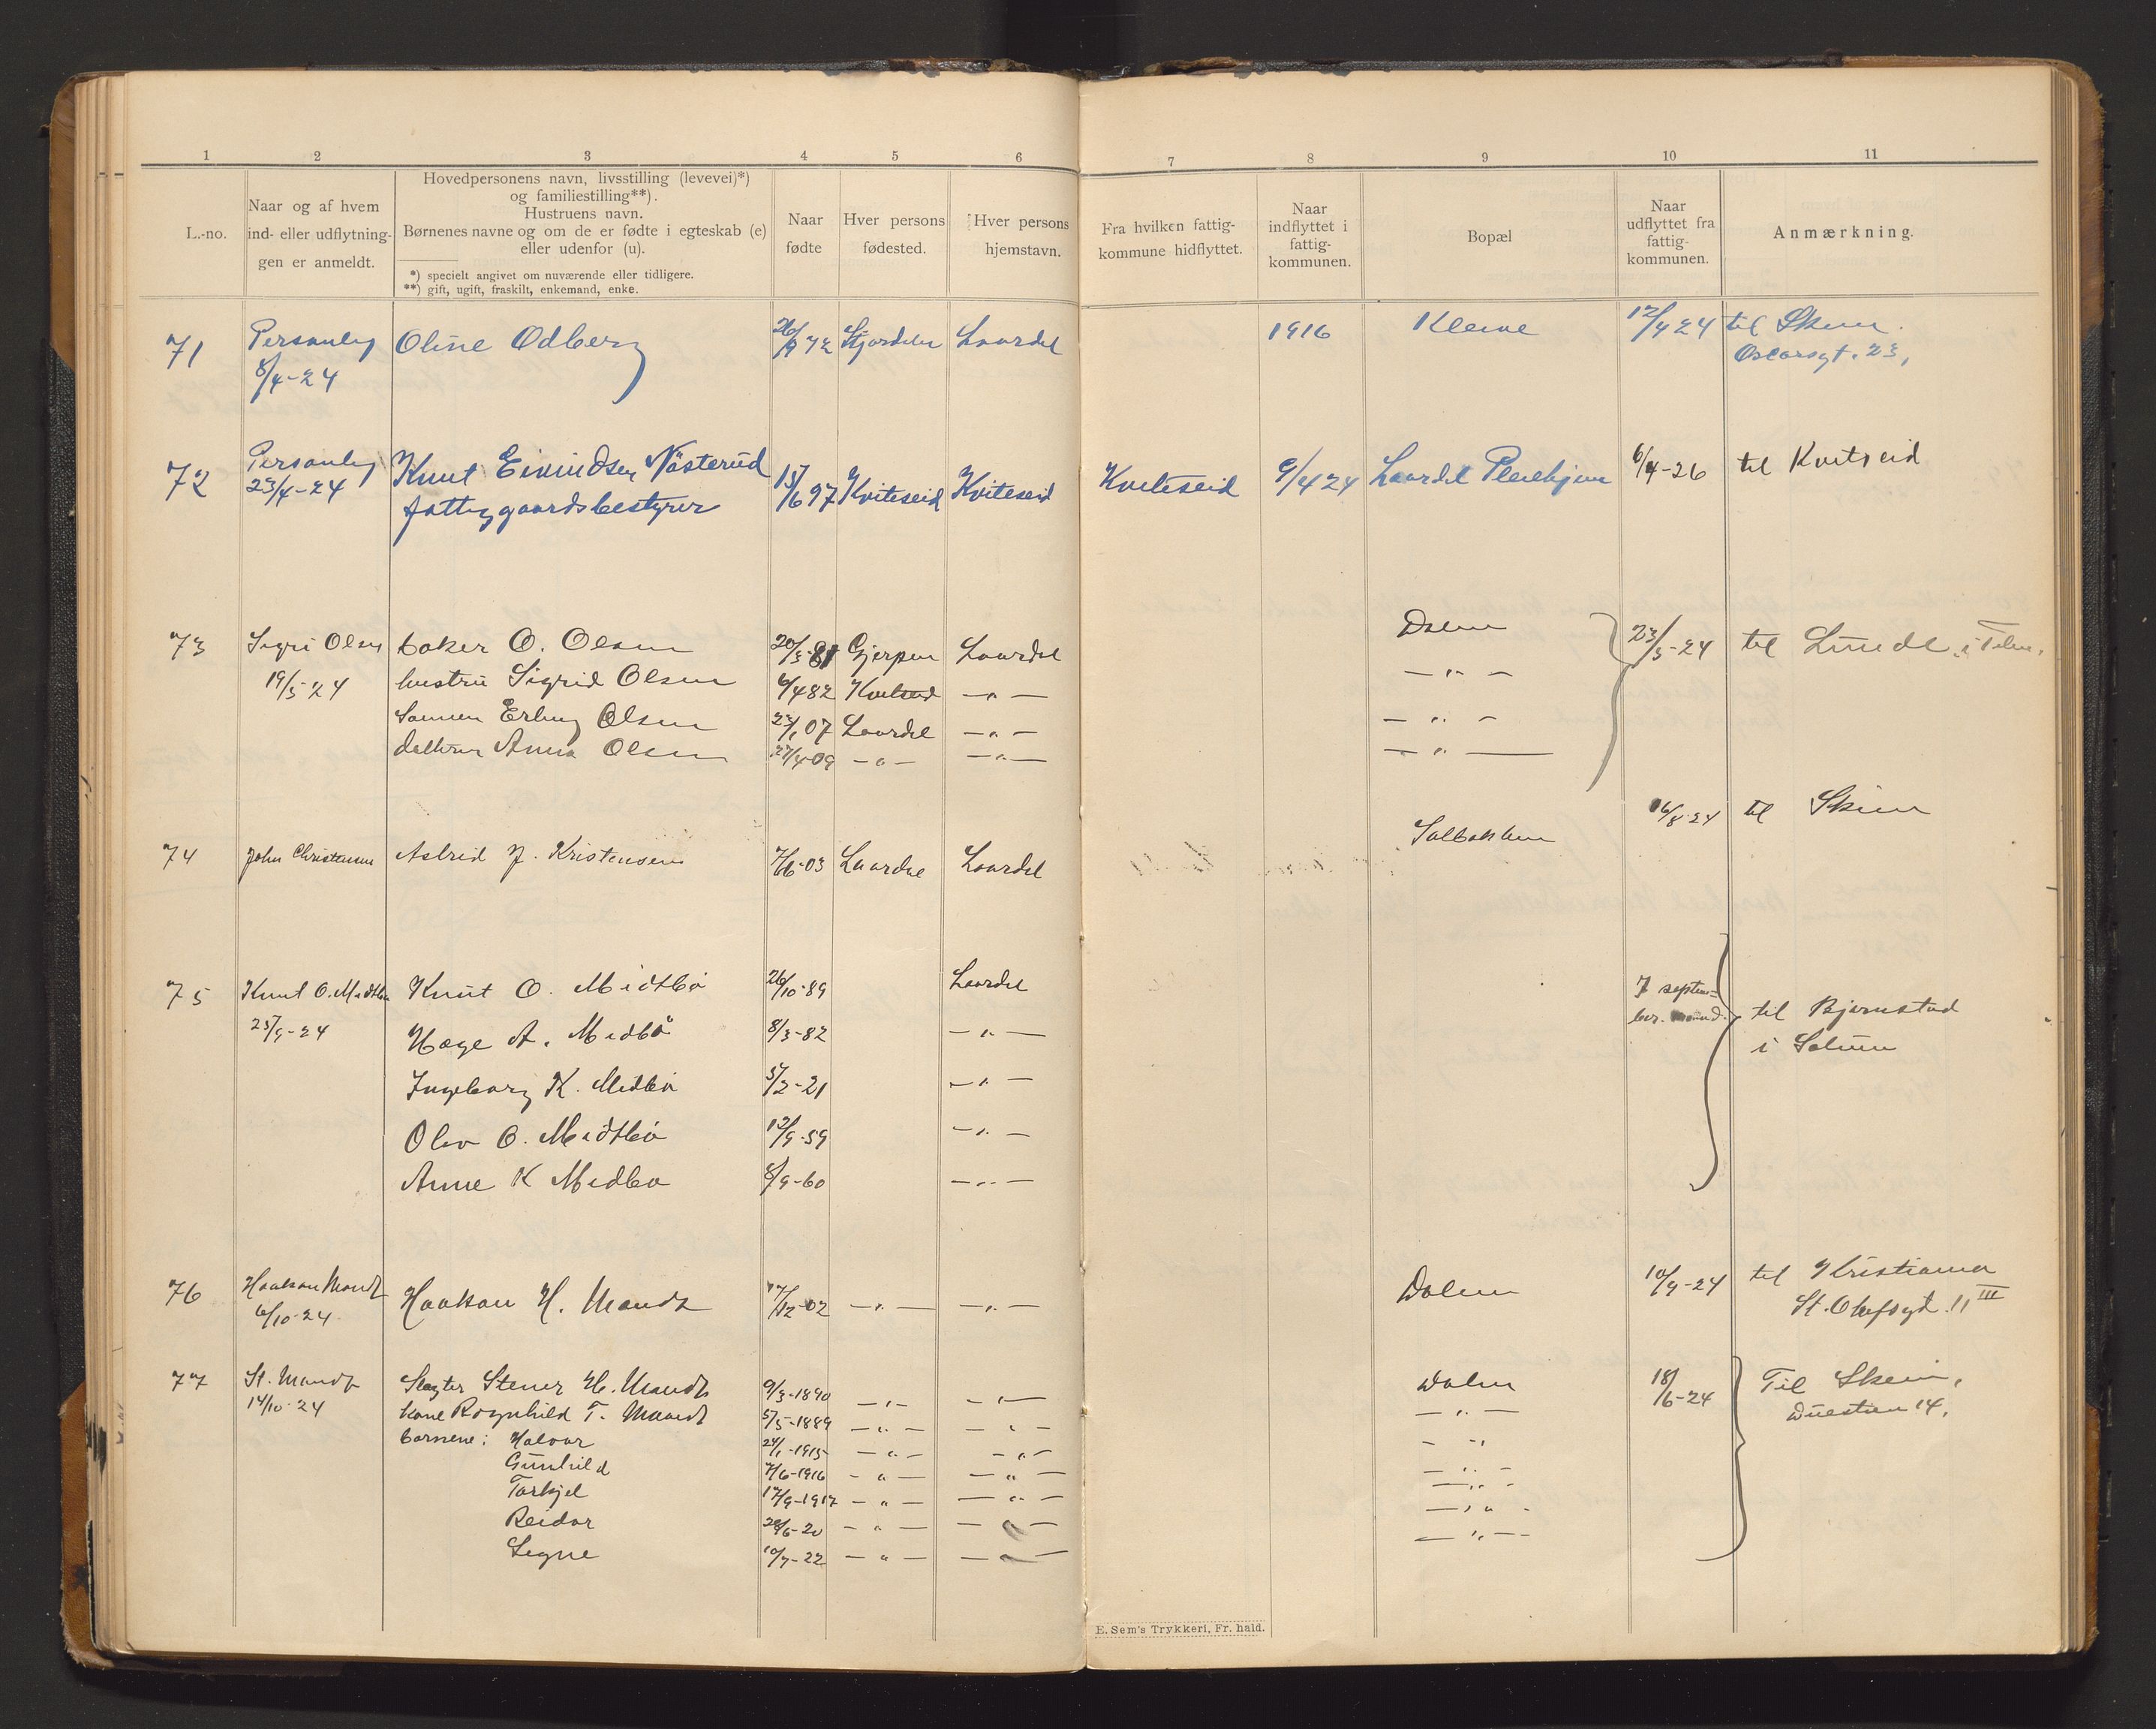 1 2 3 4 5 6 7 8 9 10 11
L.-no.
Naar og af hvem
ind- eller udflytnin-
gen er anmeldt.
Hovedpersonens navn, livsstilling (levevei)*)
og familiestilling**).
Hustruens navn.
Børnenes navne og om de er fødte i egteskab (e)
eller udenfor (u).
*) specielt angivet om nuværende eller tidligere.
**) gift, ugift, fraskilt, enkemand, enke.
Naar
fødte
Hver persons
fødested.
Hver persons
hjemstavn.
Fra hvilken fattig-
kommune hidflyttet.
Naar
indflyttet i
fattig-
kommunen.
Bopæl
Naar
udflyttet fra
fattig-
kommunen.
Anmærkning.
71 Personlig Oline Odberg 26/9 72 Laardal 1916 Kleive 12/4 24 til Skien.
8/4-24 Oscarsgt. 23,
72 Personlig Knut Eivindsen Nåsterud 15/6 97 Kviteseid Kviteseid Kviteseid 9/4 24 Laardal Pleiehjem 6/4-26 til Kvitseid
23/4-24 fattiggaardsbestyrer
73 Sigri Olsen baker O. Olsen 20/3-81 Gjerpen Laardal Dalen 23/5-24 til Lunde i Telem.
19/5-24 hustru Sigrid Olsen 6/4 82 Kvitseid — " — — " —
Sønnen Erling Olsen 23/1 07 Laardal — " — — " —
datteren Anna Olsen 27/4-09 — " — — " — — " —
74 John Christensen Astrid J. Kristensen 7/6-03 Laardal Laardal 16/8-24 til Skien
75 Knut O. Midtbø Knut O. Midtbø 26/10-89 Laardal 7 septem-
25/9-24 ber. til Bjørnstad
Hæge A. Midbø 8/3-82 — " — i Solum
Ingeborg K. Midbø 5/2-21 — " —
Olav O. Midtbø 12/9-59 — " —
Anne K Midbø 8/9-60 — " —
76 Haakon Mandt Haakon H. Mandt 17/12-02 — " — — " — Dalen 10/9-24 til Kristiania
6/10-24 St. Olafsgt. 11 III
77 St. Mandt Slagter Stener H. Mandt 9/3-1890 — " — — " — Dalen 18/6-24 Til Skien,
14/10-24 kone Ragnhild T. Mandt 5/5-1889 — " — — " — — " — 14,
barnene: Halvor 24/1-1915 — " — — " — — " —
Gunhild 7/6-1916 — " — — " — — " —
Torkjel 17/9-1917 — " — — " — — " —
Reidar 28/6-20 — " — — " — — " —
Signe 10/7-22 — " — — " — — " —
E. Sem's Trykkeri, Fr. hald.